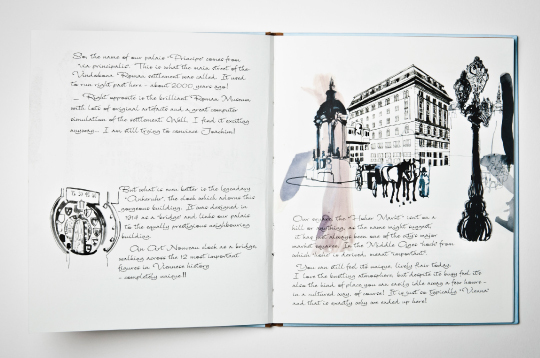 So, the name of our palais "Principe" comes from
"via principalis". This is what the main street of the
Vindobona Roman settlement was called. It used
to run right past here - about 2000 years ago!
Right opposite is the brilliant Roman Museum
with lots of original artefacts and a great computer
simulation of the settlement. Well, I find it exciting
anyway... I am still trying to convince Joachim!
But what is even better is the legendary
"Ankeruhr", the clock which adorns this
gorgeous building. It was designed in
1914 as a "bridge" and links our palais
to the equally prestigious neighbouring
building.
An Art Nouveau clock as a bridge,
walking across the 12 most important
figures in Viennese history
- completely unique!!
Our the "Hoher Markt" isn't on a
hill or anything, as the name might suggest,
it has always been one of the city's major
market squares. In the Middle Ages "hoch" from
which is derived, meant "important".
You can still feel its unique, lively flair today.
I love the bustling atmosphere, but despite its busy feel it's
also the kind of place you can easily idle away a few hours -
in a cultured way, of course! It is just so typically "Vienna"
and that is exactly why we ended up here!